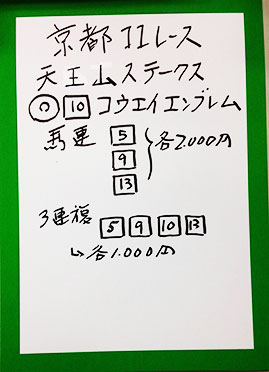 京都11レース
天王山ステークス
◎ 10 コウエイエンブレム
馬連 5 } 各2.000円
9
13
3連複 5 9 10 13
↳各1.000円